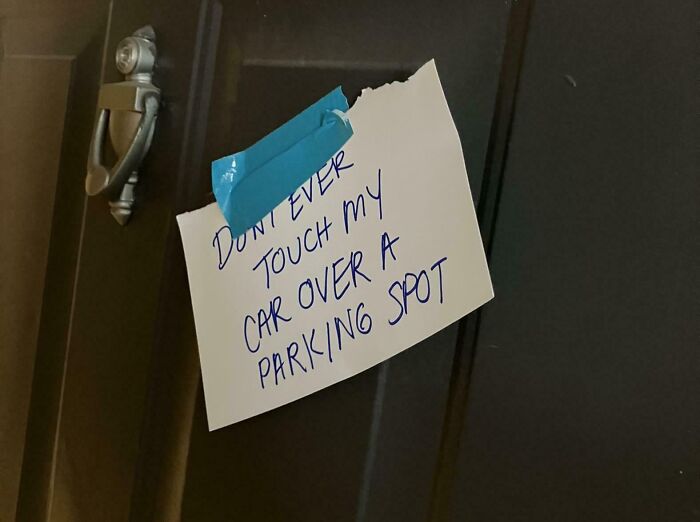 DONT EVER
TOUCH MY
CAR OVER A
PARKING SPOT